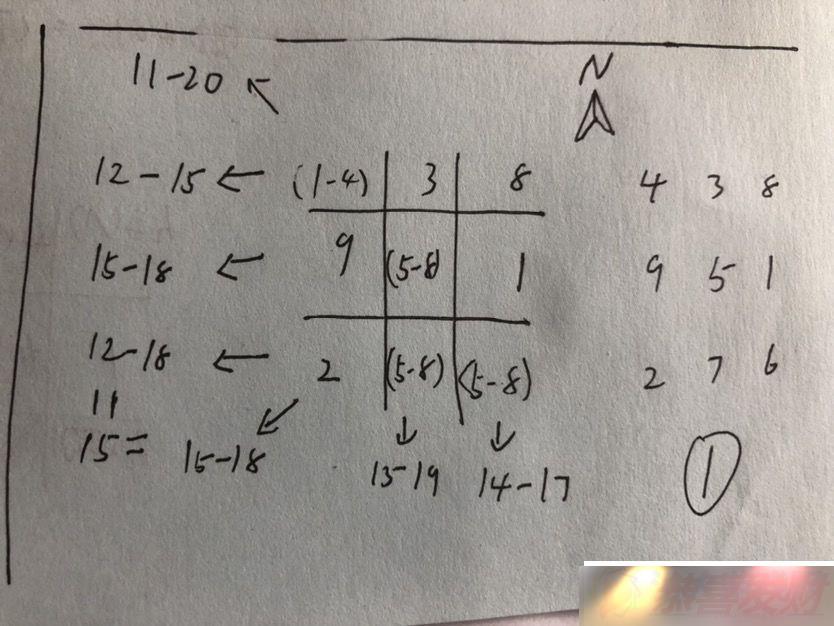 11-20 ↖ N
12-15 ← (1-4) 3 8 4 3 8
15-18 ← 9 (5-8) 1 9 5 1
12-18 ← 2 (5-8) (5-8) 2 7 6
11
15= 15-18 ↙ ↓ ↓
13-19 14-17 ①